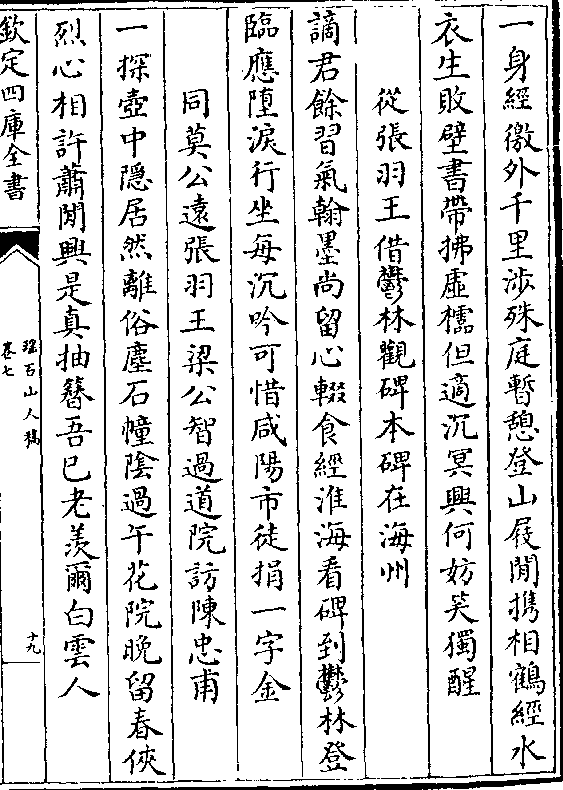 一身經徼外千里涉殊庭暫憩登山屐閒携相鶴經水
衣生敗壁書帶拂虛櫺但適沉冥興何妨笑獨醒
從張羽王借鬱林觀碑本碑在海州
謫君餘習氣翰墨尚留心輟食經淮海看碑到鬱林登
臨應墮淚行坐每沉吟可惜咸陽市徒捐一字金
同莫公遠張羽王梁公智過道院訪陳忠甫
一探壺中隱居然離俗塵石幢陰過午花院晚留春俠
烈心相許蕭閒興是真抽簪吾已老羨爾白雲人
欽定四庫全書
瑶石山人稿
卷七
十九